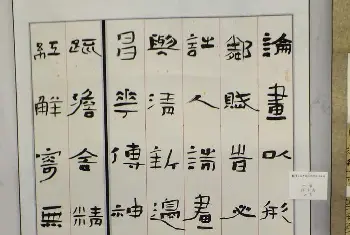 論畫以形
鄰賦詩必
詩人詩畫
與清新邊
昌花傳神
疏澹含精
紅解寄無